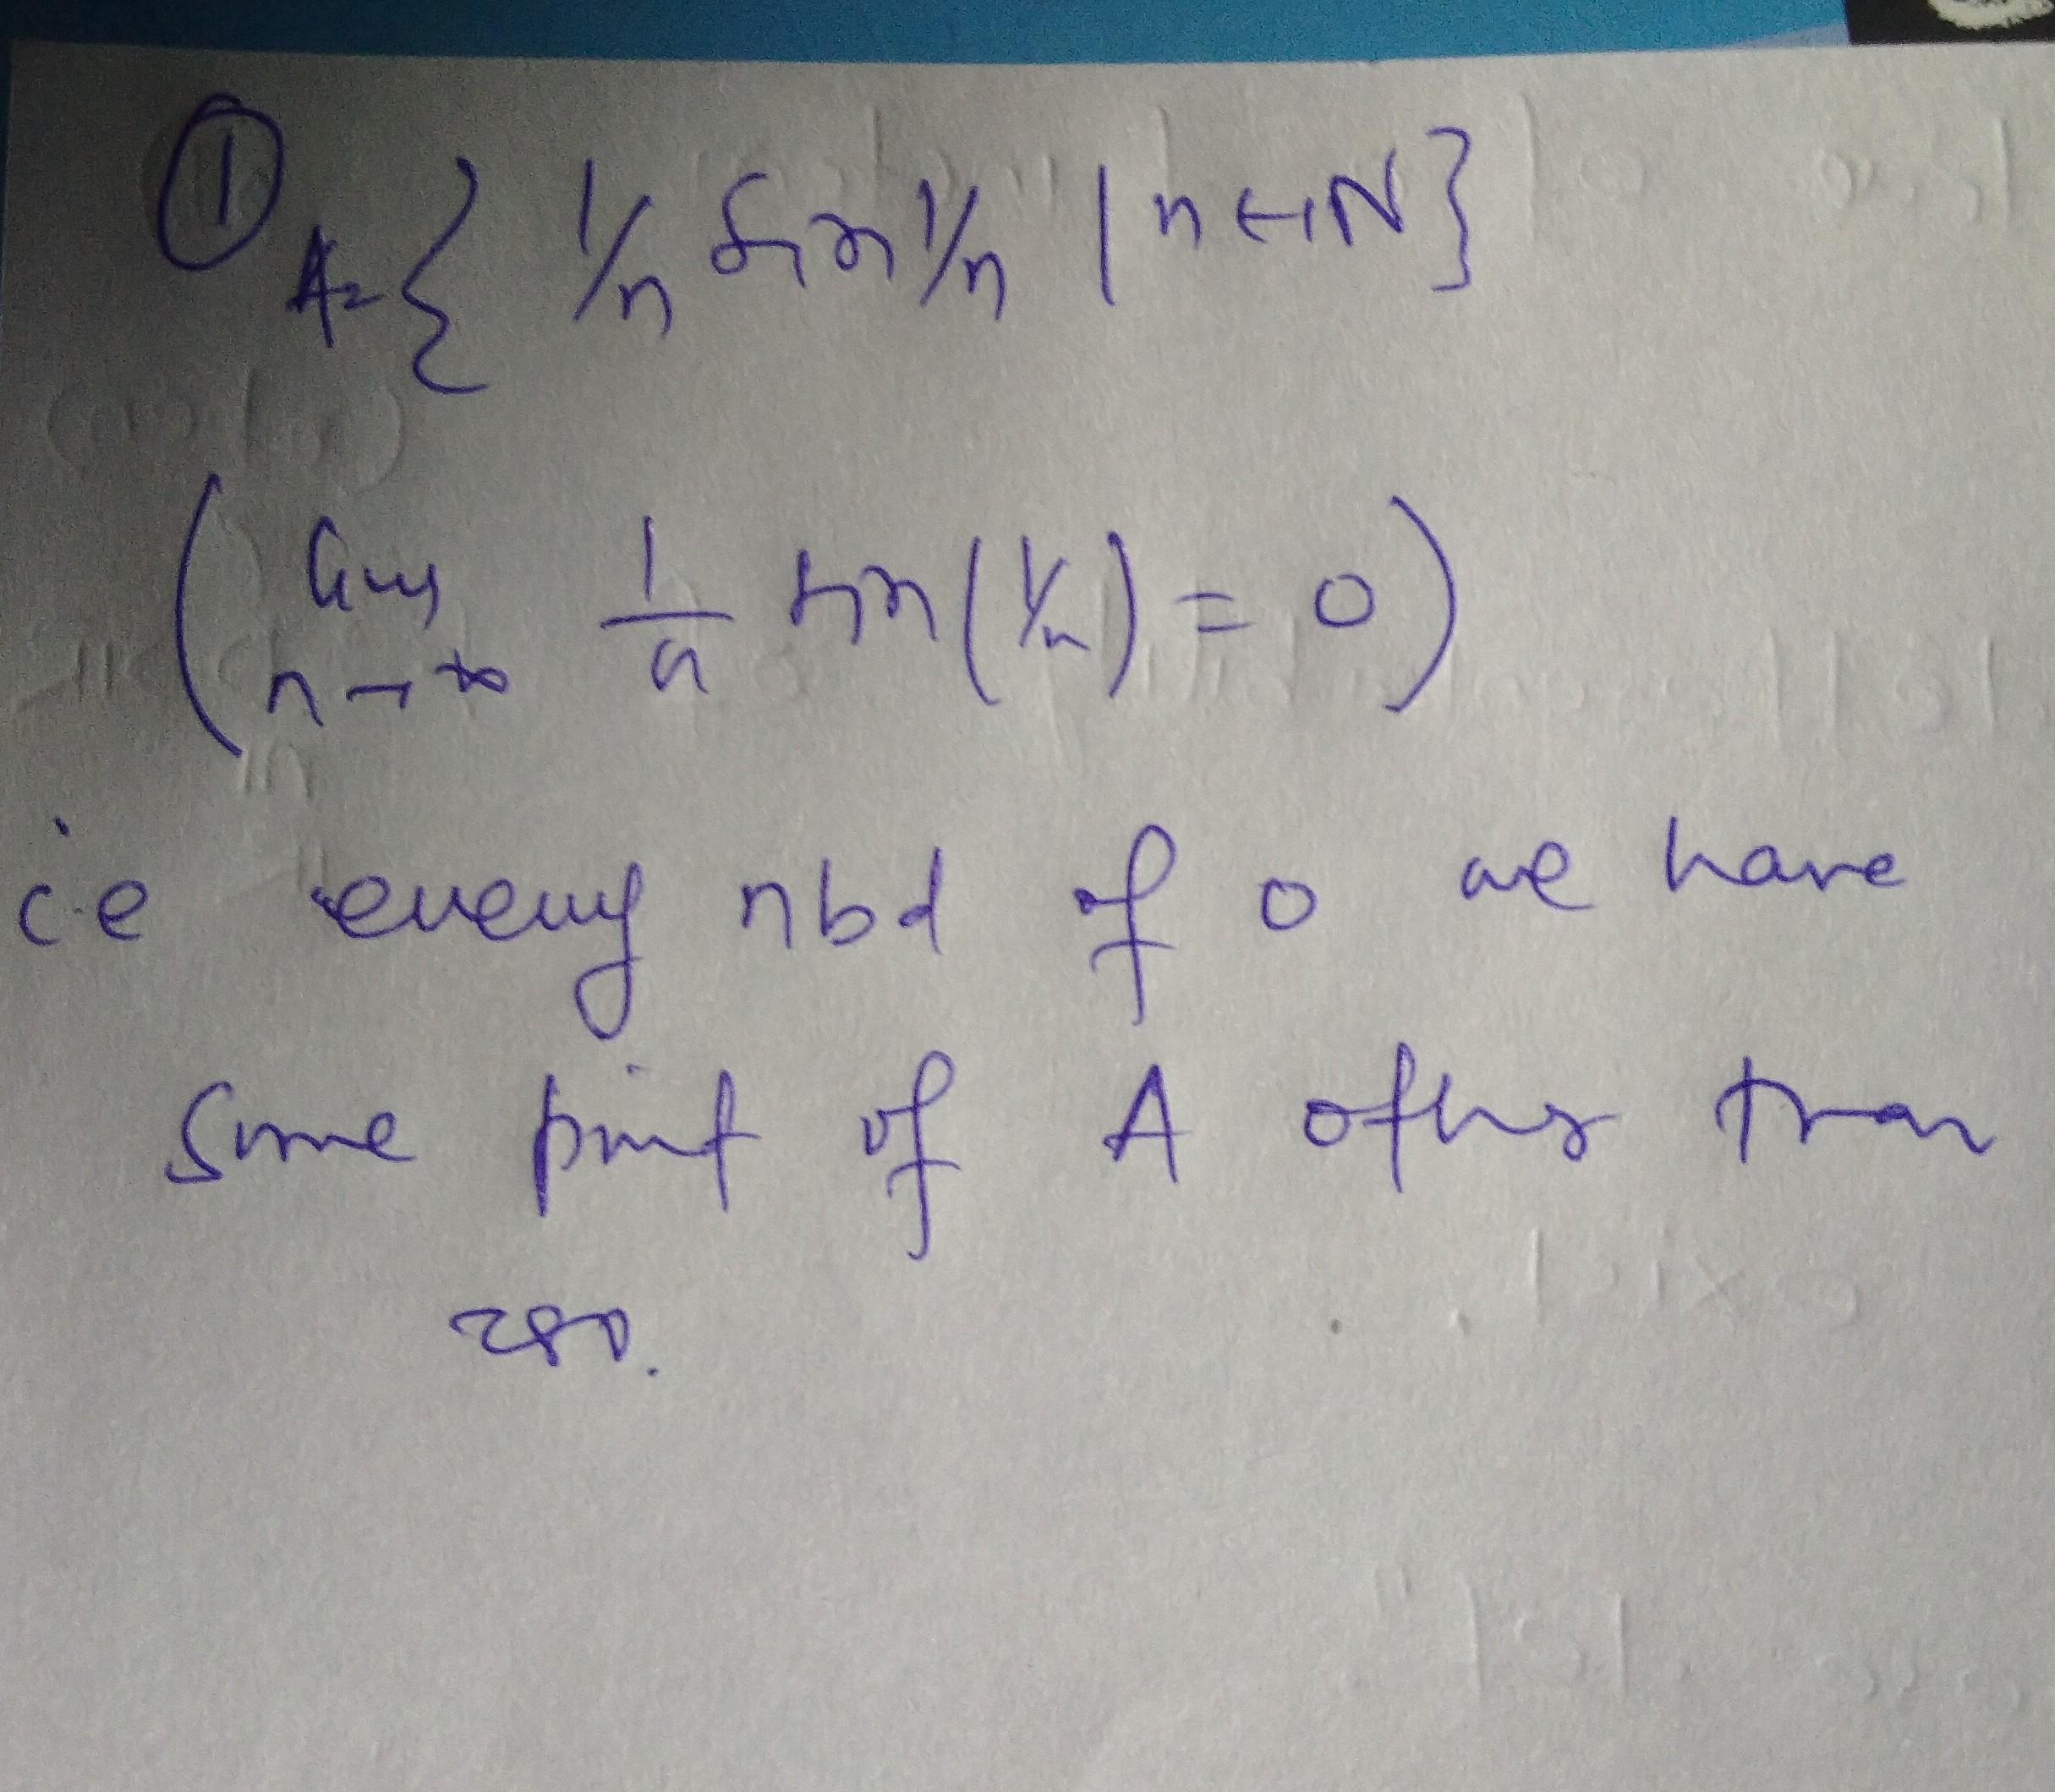 ①
A = { 1/n sin 1/n | n ∈ IN }
( lim n→∞ 1/n sin(1/n) = 0 )
i.e every nbd of 0 we have
some point of A other than
zero.